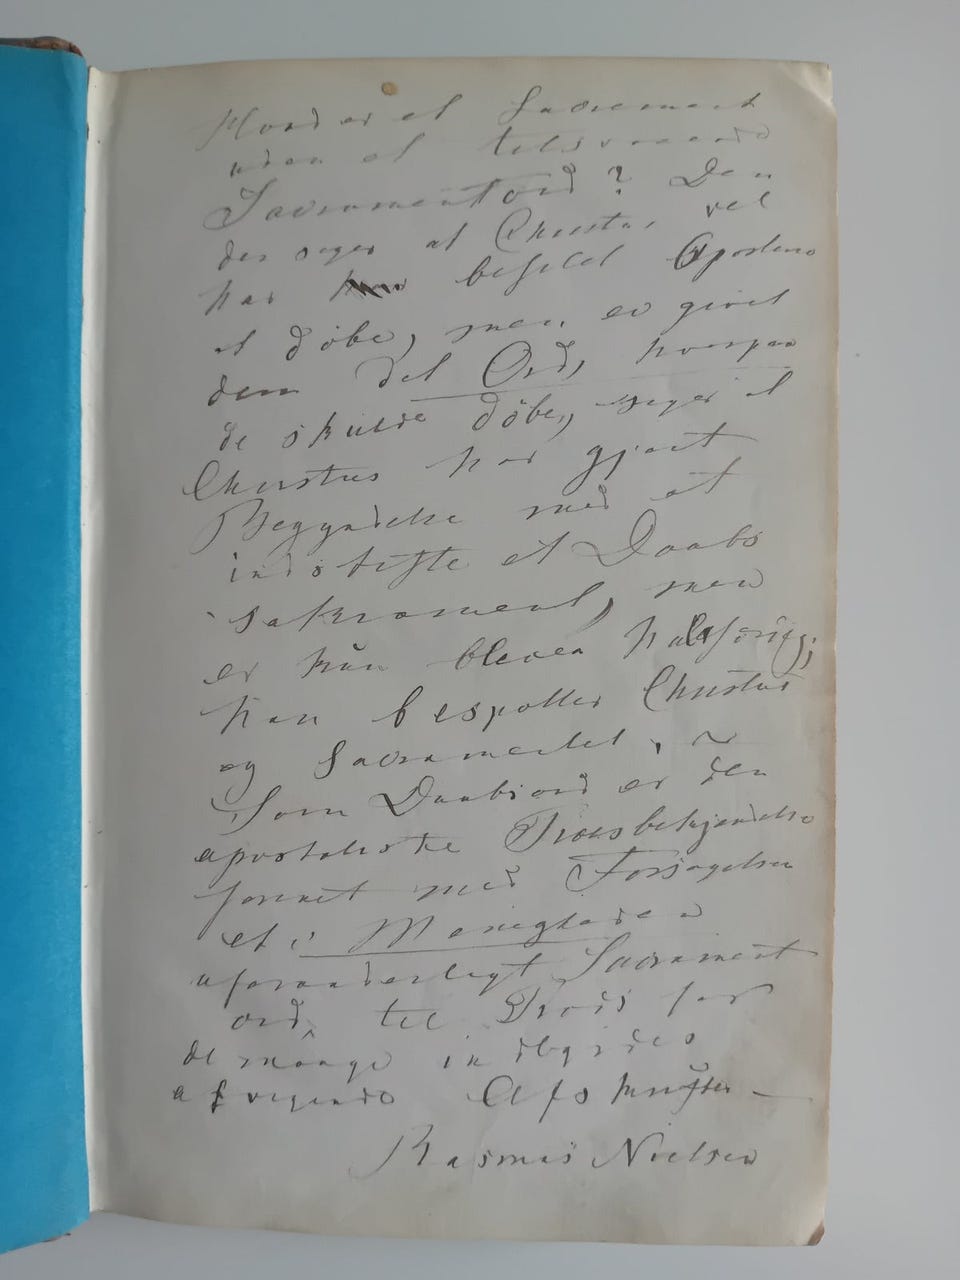 Hvad er et Sacrament
uden et tilsvarende
Sacramentord? Den
der siger at Christus vel
har befalet Apostlene
at døbe, men ei givet
dem det Ord, hvorpaa
de skulde døbe, siger at
Christus har gjort
Begyndelse med at
indstifte et Daabs
sakrament, men
er kun bleven halvfærdig;
han bespotter Christus
og Sacramentet. ~
Som Daabsord er den
apostoliske Troesbekjendelse
forenet med Forsagelsen
et i Menigheden
uforanderligt Sacrament
ord, til Trods for
de mange indbyrdes
afvigende Afskrifter —
Rasmus Nielsen